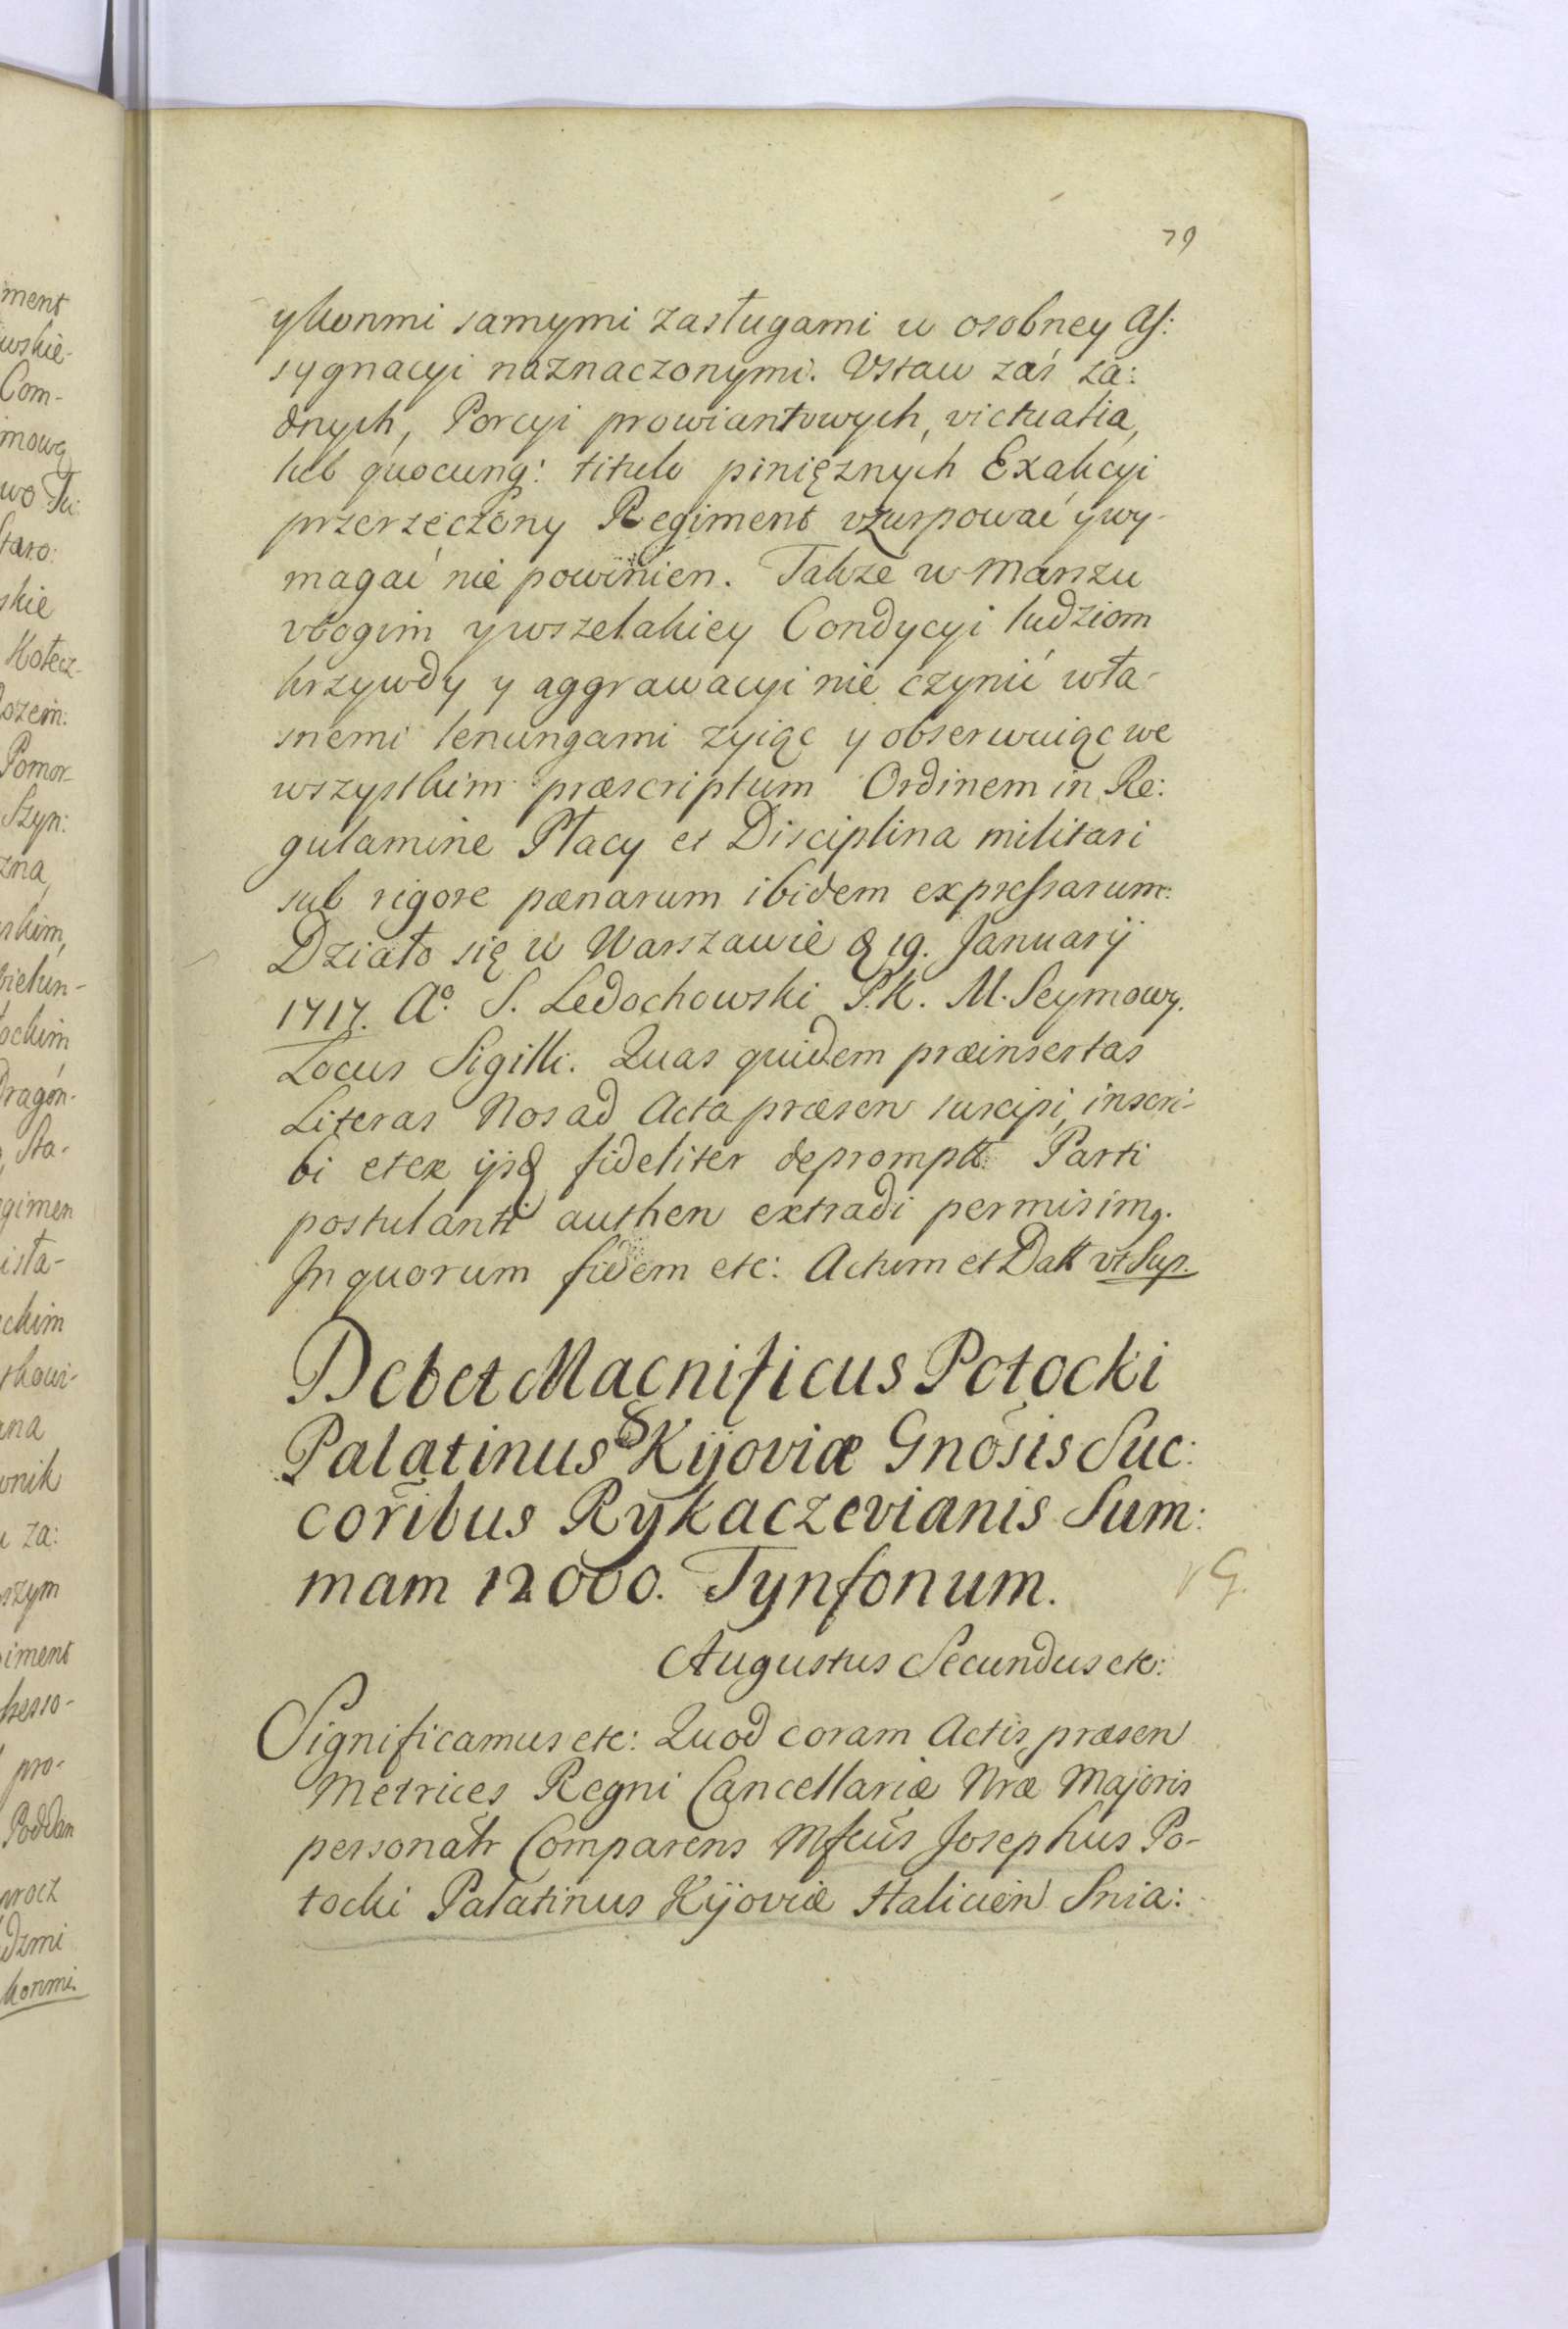 79
ykonmi samymi zasługami w osobney As:
sygnacyi naznaczonymi. Vstaw zaś ża:
dnych, Porcyi prowiantowych, victualia,
lub quocunq: titulo piniężnych Exakcyi
przerzeczony Regiment vzurpować ywy-
magać nie powinien. Takze w Marszu
vbogim ywszelakiey Condycyi ludziom
krzywdy y aggrawacyi nie czynić wła-
snemi lenungami zyiąc y obserwuiąc we
wszystkim præscriptum Ordinem in Re:
gulamine Płacy et Disciplina militari
sub rigore pænarum ibidem expressarum.
Działo się w Warszawie D 19. Januarij
1717. Aº S. Ledochowski P.K. M. Seymowy.
Locus Sigilli. Quas quidem præinsertas
Literas Nos ad Acta præsen suscipi, inscri-
bi etex ijsd fideliter deprompt. Parti
postulanti authen extradi permisim9.
In quorum fidem etc: Actum et Datt vt Sup.
Debet Magnificus Potocki
Palatinus Kijoviæ Gnosis Suc:
coribus Rykaczevianis Sum:
mam 12000. Tynfonum.
Augustus Secundus etc:
Significamus etc: Quod coram Actis præsen
Metrices Regni Cancellariæ Nræ Majoris
personatr Comparens Mfcus Josephus Po-
tocki Palatinus Kijoviæ Halicien Snia:
ment
wskie-
Com-
mową
Staro:
skie
Kotecz-
Pomor-
Szyn:
zna,
skim,
bielun-
ochim
Dragon-
Sta-
gimen
ista-
ckim
ana
onik
u za:
szym
iment
pro-
Poddan
procz
dzmi
konmi.